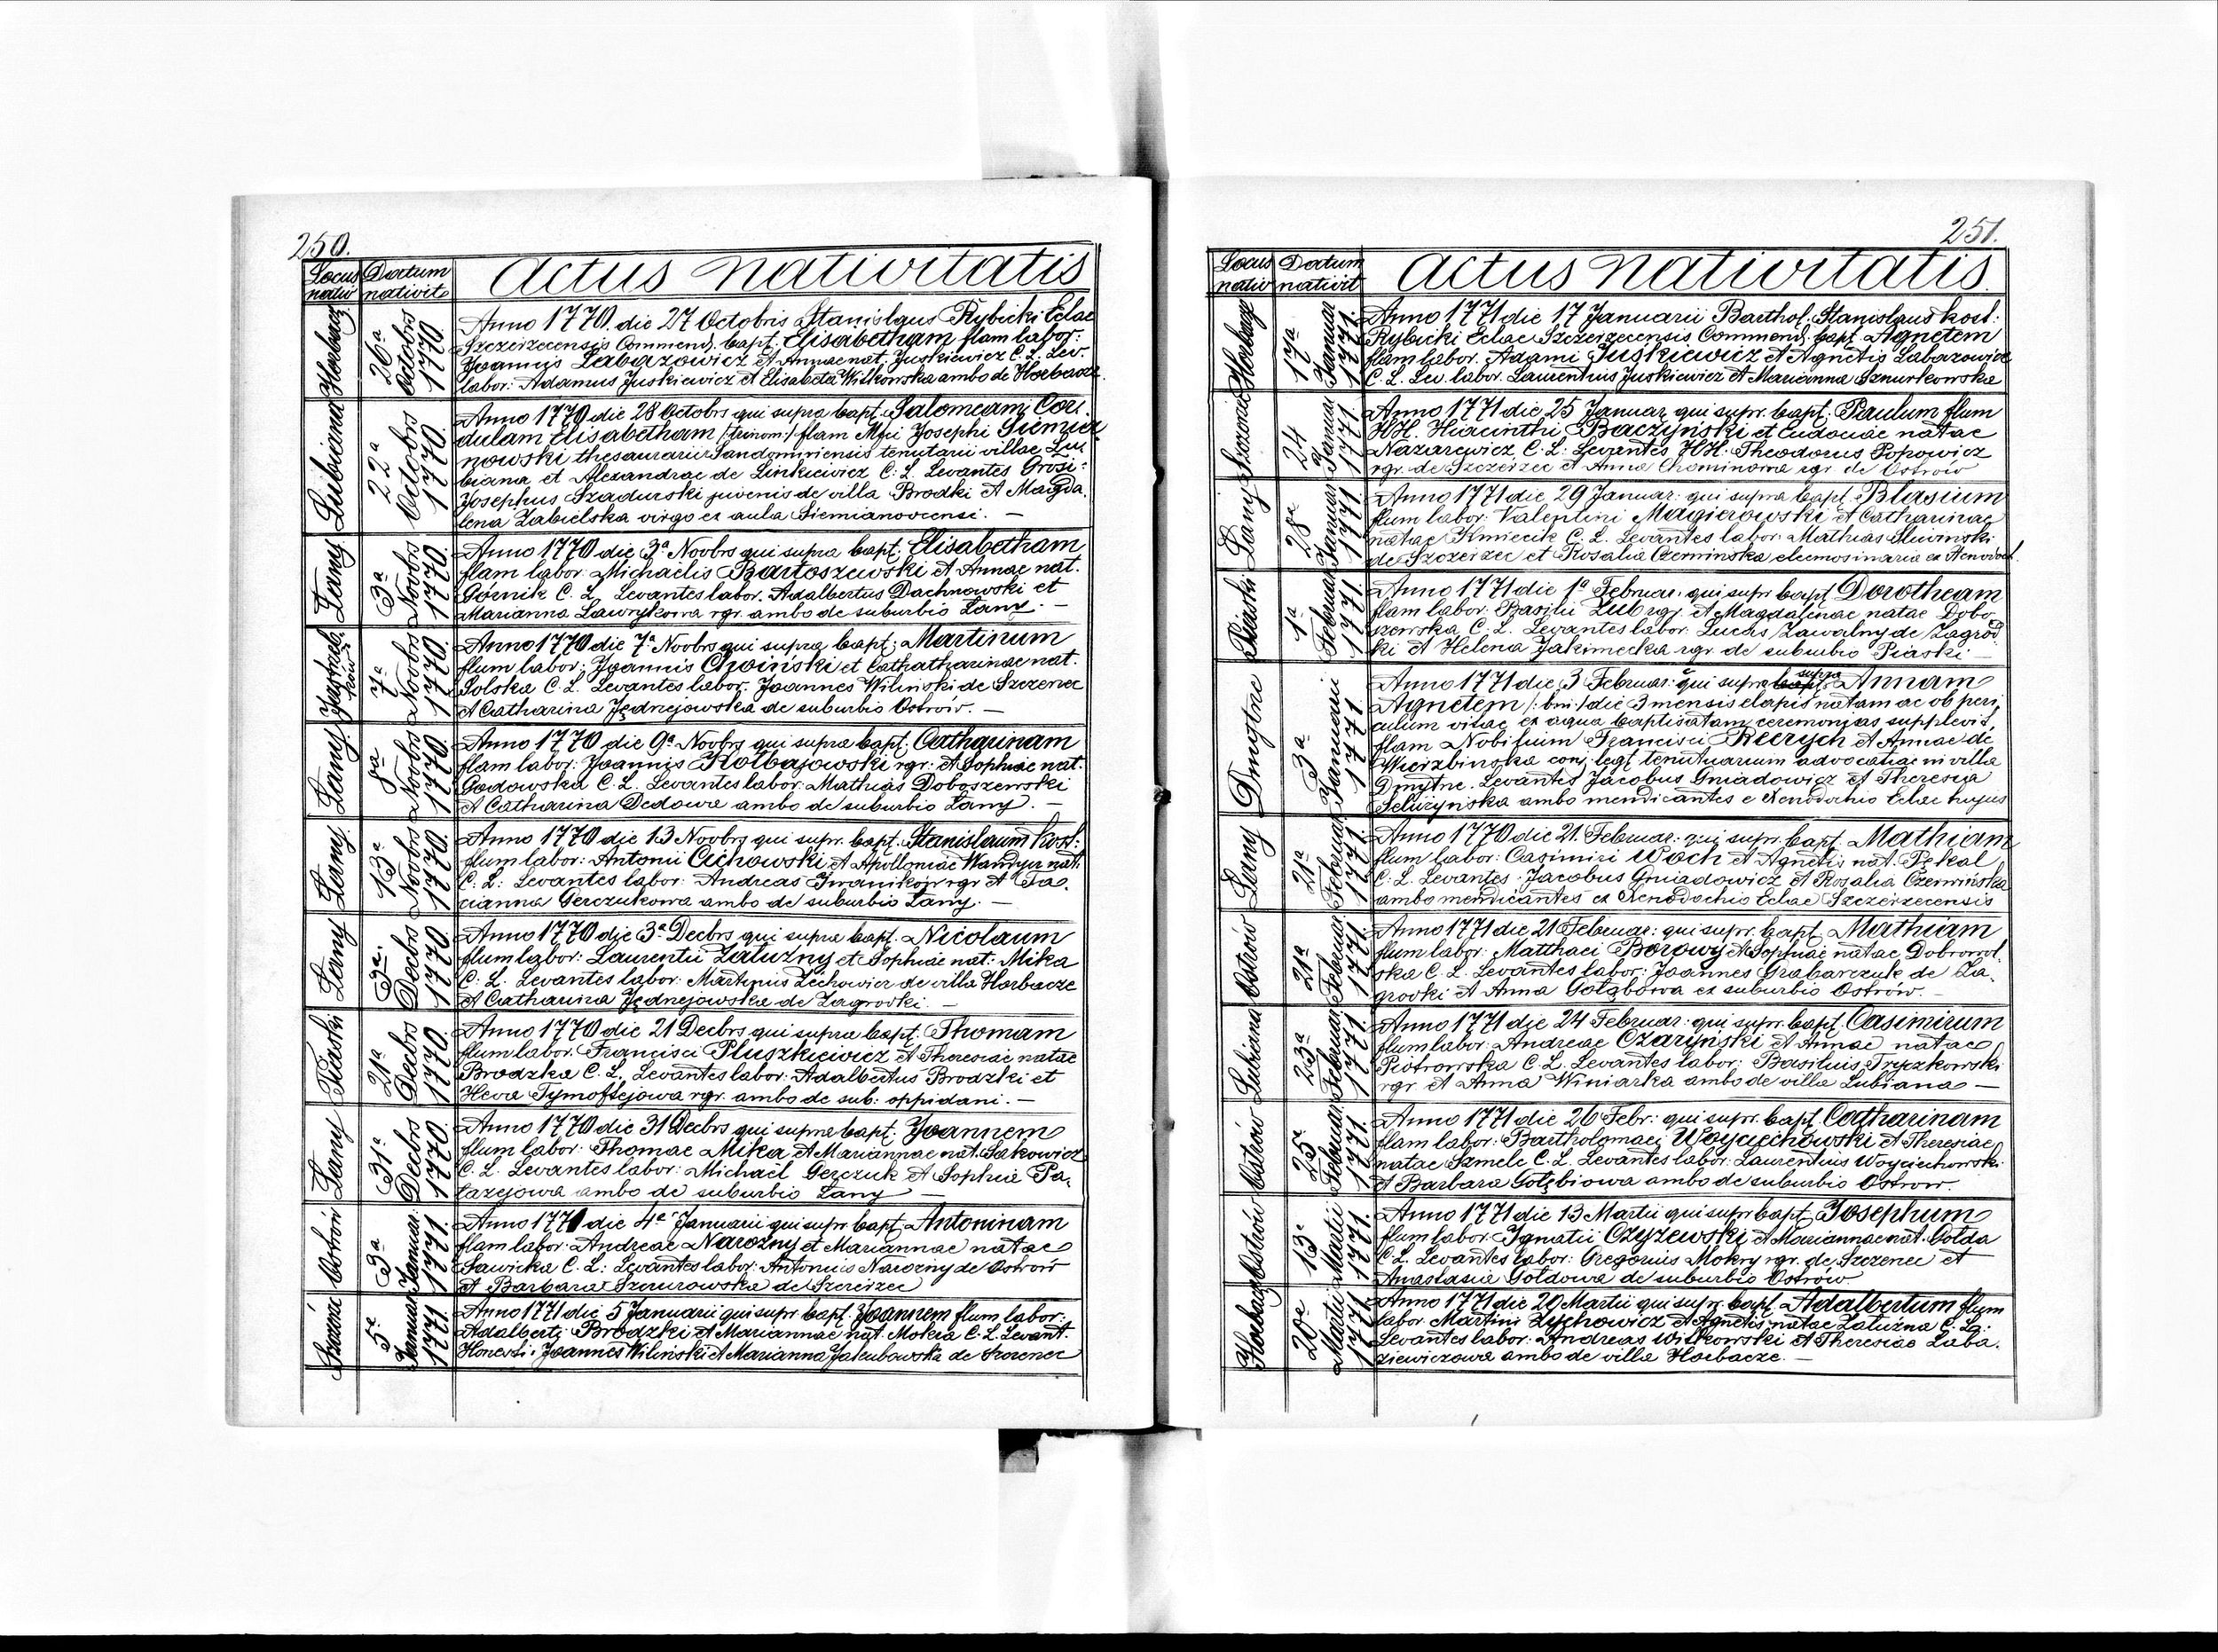 250.
Locus nativ
Datum nativit
Actus nativitatis
Horbacz
26a Octobrs 1770.
Anno 1770. die 27 Octobris Stanislaus Rybicki Eclae
Szczerzecensis Commend. bapt. Elisabetham flam labor:
Joannis Labazowicz et Annae nat. Juskiewicz C. L. Lev.
labor: Adamus Juskiewicz et Elisabeta Witkowska ambo de Horbacze.
Lubiana
22a Octobrs 1770.
Anno 1770 die 28 Octobrs qui supra bapt. Salomeam, Cor-
dulam Elisabetham /:trinom:/ flam Mfici Josephi Siemia
nowski thesaurarii Sandomiriensis tenutarii villae Lu
biana et Alexandrae de Linkiewicz C. L. Levantes Grosi:
Josephus Szadurski juvenis de villa Brodki et Magda.
lena Zabielska virgo ex aula Siemianovcensi. —
Łany
3a Novbrs 1770.
Anno 1770 die 3a Novbrs qui supra bapt. Elisabetham
flam labor: Michaelis Bartoszewski et Annae nat.
Górnik C. L. Levantes labor. Adalbertus Dachnowski et
Marianna Lawrykowa rgr. ambo de suburbio Łany. —
7a Novbrs 1770.
Anno 1770 die 7a Novbrs qui supra bapt. Martinum
flum labor: Joannis Ozoiński et Cathatharinae nat.
Solska C. L. Levantes labor. Joannes Wiliński de Szczerzec
et Catharina Jędrzejowska de suburbio Ostrów. —
Łany
8a Novbrs 1770.
Anno 1770 die 9a Novbrs qui supra bapt. Catharinam
flam labor: Joannis Kołbajowski rgr: et Sophiae nat.
Godowska C. L. Levantes labor: Mathias Doboszewski
et Catharina Dedowa ambo de suburbio Łany. —
Łany
13a Novbrs 1770.
Anno 1770 die 13 Novbrs qui supr. bapt. Stanislaum Kost:
flum labor: Antonii Cichowski et Apolloniae Wandyez nat:
C. L: Levantes labor: Andreas Iwaników rgr et Ta.
cianna Gerczukowa ambo de suburbio Łany. —
Łany
3a Decbrs 1770.
Anno 1770 die 3a Decbrs qui supra bapt. Nicolaum
flum labor: Laurentii Załuzny et Sophiae nat: Mika
C. L. Levantes labor: Martinus Zechowicz de villa Horbacze
et Catharina Jędrzejowska de Zagrodki. —
Piaski
21a Decbrs 1770.
Anno 1770 die 21 Decbrs qui supra bapt. Thomam
flum labor. Francisci Pluszkiewicz et Theresiae natae
Brodzka C. L. Levantes labor: Adalbertus Brodzki et
Heva Tymofiejowa rgr. ambo de sub: oppidani. —
Łany
31a Decbrs 1770.
Anno 1770 die 31 Decbrs qui supra bapt. Joannem
flum labor: Thomae Mika et Mariannae nat. Sakowicz
C. L. Levantes labor: Michaël Gerczuk et Sophia Pa.
łazejowa ambo de suburbio Łany —
Ostrów
3a Januar. 1771.
Anno 1771 die 4a Januarii qui supr bapt. Antoninam
flam labor: Andreae Narozny et Mariannae natae
Sawicka C. L: Levantes labor: Antonius Narozny de Ostrów
et Barbara Szczurowska de Szczerzec
Szczerzec
5a Januar 1771.
Anno 1771 die 5 Januarii qui supr bapt. Joannem flum labor:
Adalberti Brodzki et Mariannae nat. Mokra C. L. Levant.
Honesti: Joannes Wiliński et Marianna Jakubowska de Szczerzec
251.
Locus nativ
Datum nativit
Actus nativitatis.
Horbacz
17a Januar 1771.
Anno 1771 die 17 Januarii Barthol: Stanislaus kost:
Rybicki Eclae Szczerzecensis Commend. bapt. Agnetem
flam labor. Adami Juskiewicz et Agnetis Labazowicz
C. L. Lev. labor. Laurentius Juskiewicz et Marianna Sznurkowska
24 Januar 1771.
Anno 1771 die 25 Januar qui supr. bapt. Paulum flum
HH. Hiacinthi Baczyński et Eudociae natae
Nazarewicz C. L: Levantes HH. Theodorus Popowicz
rgr. de Szczerzec et Anna Chominowa rgr de Ostrów
Łany
28a Januar 1771.
Anno 1771 die 29 Januar: qui supra bapt. Blasium
flum labor: Valentini Magierowski et Catharinae
natae Kmiecik C. L. Levantes labor: Mathias Sliwinski
de Szczerzec et Rosalia Czerwińska elemosinaria ex Xenodoch.
Piaski
1a Februar 1771.
Anno 1771 die 1a Februar. qui supr bapt Dorotheam
flam labor: Basilii Zub rgr. et Magdalenae natae Dobo
szewska C. L. Levantes labor: Lucas Zawalny de Zagrod
ki et Helena Jakimecka rgr de suburbio Piaski —
Dmytrze
3a Januarii 1771.
Anno 1771 die 3 Februar: qui supra bapt. supra Annam
Agnetem /:bni:/ die 3 mensis elapsi natam ac ob peri,
culum vitae ex aqua baptisatam, ceremonias supplevit,
flam Nobilium Francisci Rerych et Annae de
Wierzbinska conj. legt. tenutuarium advocatiae in villa
Dmytrze. Levantes Jacobus Gniadowicz et Theresia
Seluzyńska ambo mendicantes e Xenodochio Eclae hujus
Łany
21a Februar 1771.
Anno 1770 die 21. Februar: qui supr. bapt. Mathiam
flum labor: Casimiri Woch et Agnetis nat. Pękal
C. L. Levantes: Jacobus Gniadowicz et Rosalia Czerwińska
ambo mendicantes ex Xenodochio Eclae Szczerzecensis
Ostrów
21a Februar 1771
Anno 1771 die 21 Februar: qui supr: bapt. Mathiam
flum labor: Matthaei Borowy et Sophiae natae Dobrowol.
ska C. L. Levantes labor: Joannes Grabarczuk de Za.
grodki et Anna Gołąbowa ex suburbio Ostrów. —
Lubiana
23a Februar 1771.
Anno 1771 die 24 Februar: qui supr. bapt. Casimirum
flum labor: Andreae Czaryński et Annae natae
Piotrowska C. L. Levantes labor: Basilius Tryczkowski
rgr et Anna Winiarka ambo de villa Lubiana —
Ostrów
25a Februar 1771.
Anno 1771 die 26 Febr: qui supr. bapt. Catharinam
flam labor: Bartholomaei Woyciechowski et Theresiae
natae Szmelc C. L. Levantes labor: Laurentius Woyciechowski
et Barbara Gołębiowa ambo de suburbio Ostrow.
Ostrów
13a Martii 1771.
Anno 1771 die 13 Martii qui supr bapt. Josephum
flum labor: Ignatii Czyżewski et Mariannae nat. Gołda
C. L. Levantes labor: Gregorius Mokry rgr. de Szczerzec et
Anastasia Gołdowa de suburbio Ostrów.
Horbacz
20a Martii 1771
Anno 1771 die 20 Martii qui supr. bapt. Adalbertum flum
labor. Martini Zychowicz et Agnetis natae Załuzna C. L:
Levantes labor: Andreas Witkowski et Theresiae Łaba.
ziewiczowa ambo de villa Horbacze. —